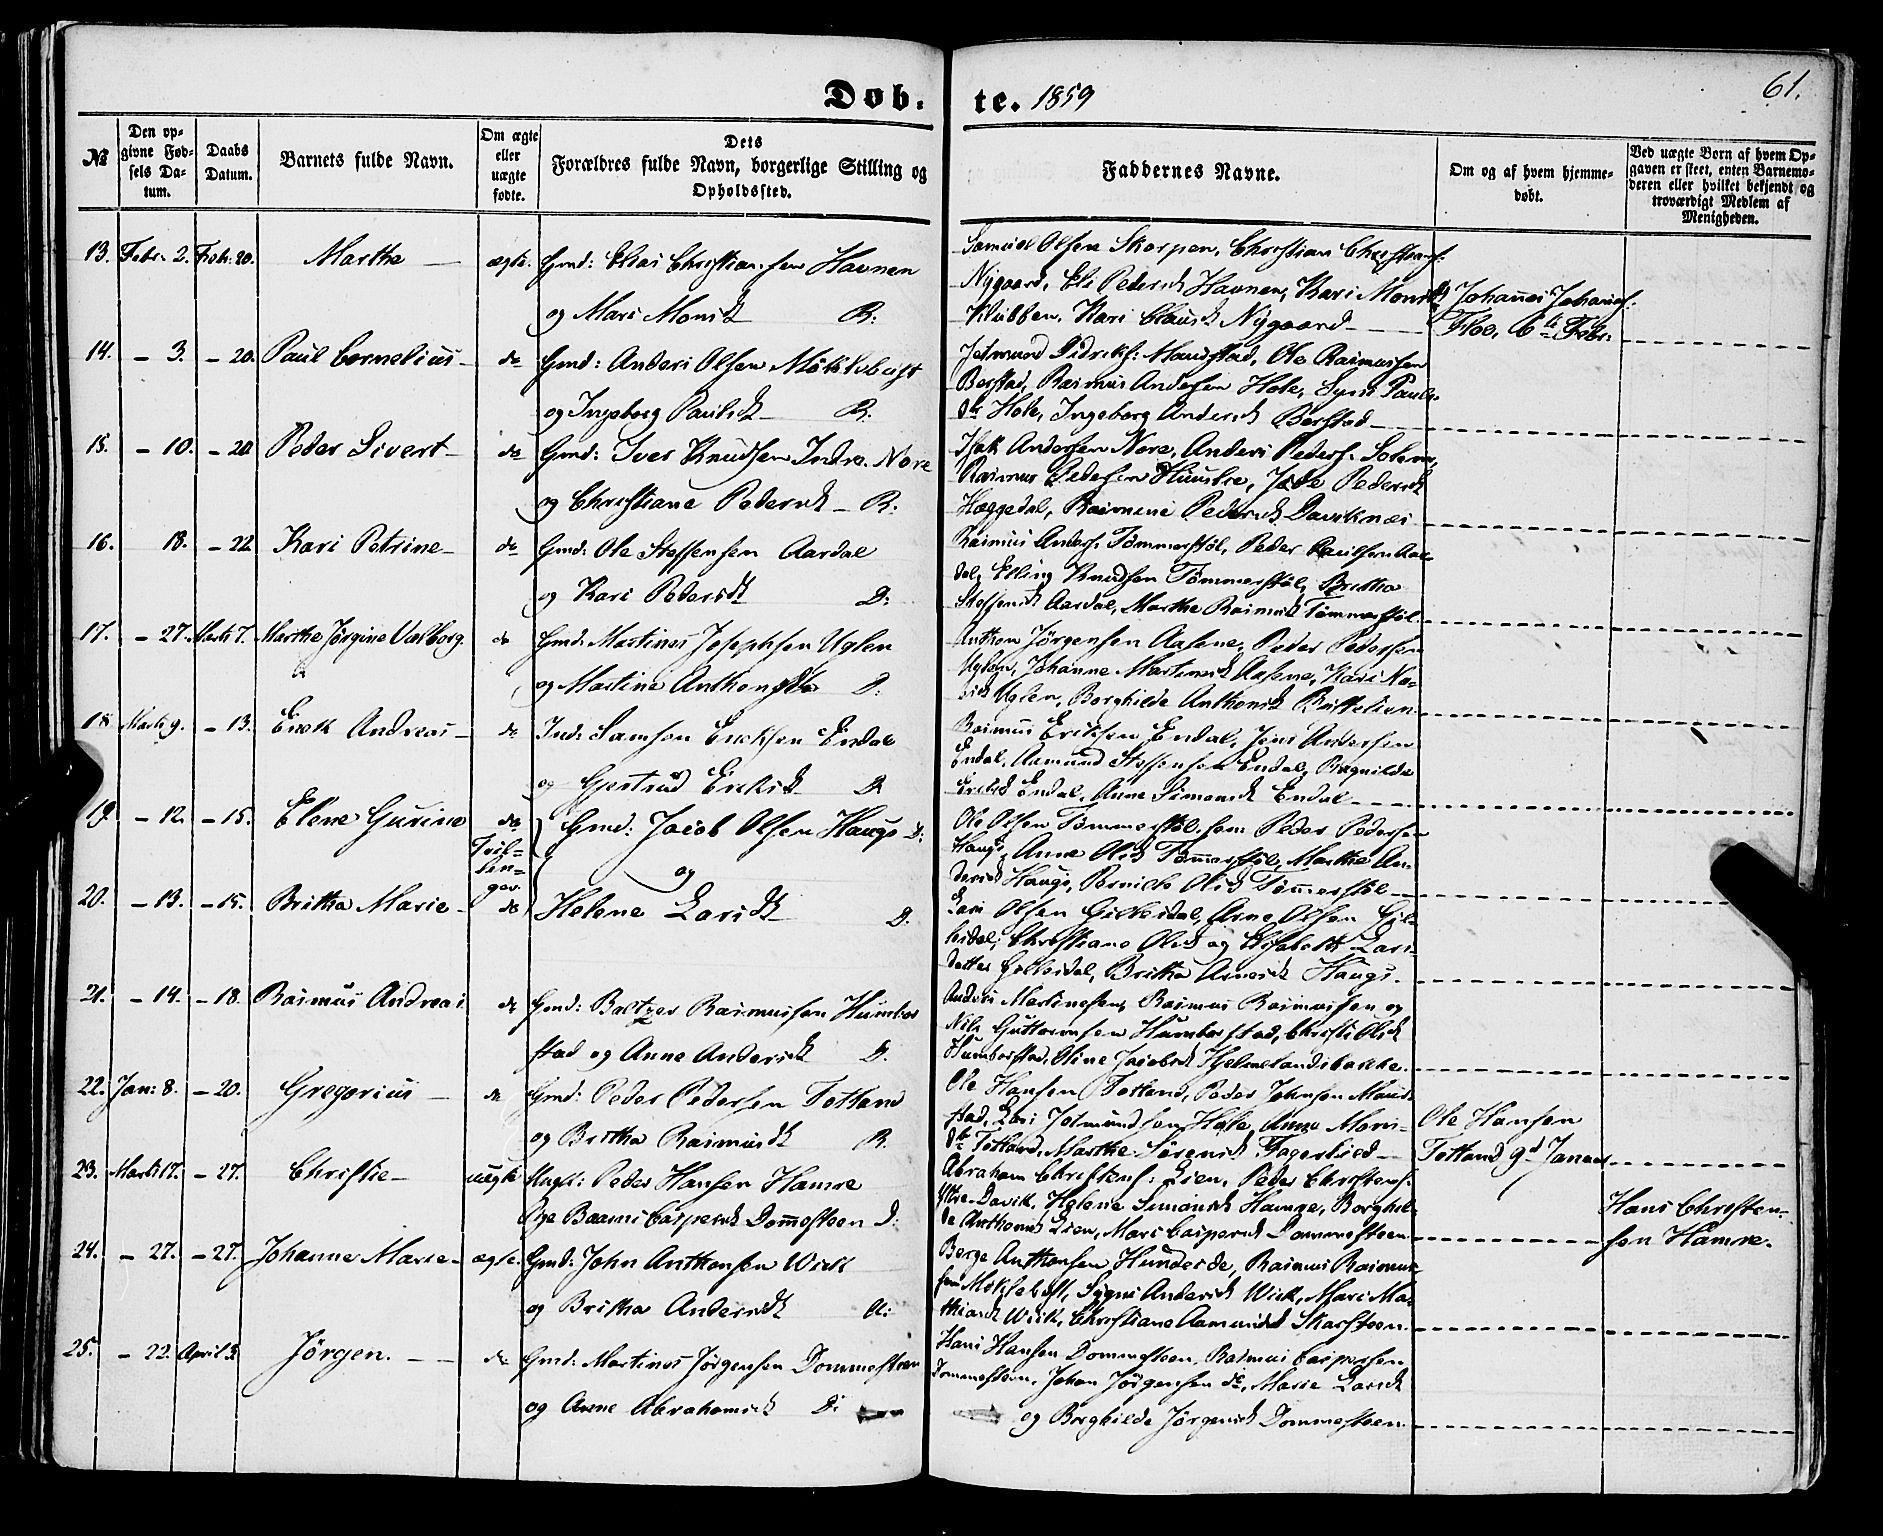 Døb- te. 1859
61.
№
Den opgivne Fødsels Datum.
Daabs Datum.
Barnets fulde Navn.
Om ægte eller uægte fødte.
Dets Forældres fulde Navn, borgerlige Stilling og Opholdssted.
Faddernes Navne.
Om og af hvem hjemmedøbt.
Ved uægte Børn af hvem Opgaven er skeet, enten Barnemoderen eller hvilket bekjendt og troværdigt Medlem af Menigheden.
13. Febr. 2. Febr. 20. Marthe — ægte. Gmd: Elias Christiansen Havnen
og Mari Monsdt R:
Samuel Olsen Skorpen, Christian Christians:
Nygaard, Eli Pedersdt Havnen, Kari Monsdt
Klubben, Kari Clausdt Nygaard
Johannes Johannes:
Floe, 6te Febr:
14. — 3. — 20. Paul Cornelius — do Gmd: Anders Olsen Möklebust
og Ingeborg Paulsdt — R.
Jetmund Didriks: Maurstad, Ole Rasmussen
Berstad, Rasmus Andersen Hole, Synni Pauls
dtr Hole, Ingeborg Andersdt Berstad
15. — 10. — 20 Peder Sivert — do Gmd: Iver Knudsen Indre Nore
og Christiane Pedersdt — R:
Isak Andersen Nore, Anders Peders: Solem,
Rasmus Pedersen Huusetre, Pedersdt
Heggedal, Rasmine Pedersdt Daviknæs
16. 18. — 22 Kari Petrine — do Gmd: Ole Steffensen Aardal
og Kari Pedersdt D:
Rasmus Anders: Tömmerstöl, Peder Paulsen Aar
dal, Elling Knudsen Tömmerstöl, Britha
Steffensdt Aardal, Marthe Rasmusdt Tömmerstöl
17. — 27. Marts 7. Marthe Jørgine Valborg. do Gmd: Martinus Josephsen Uglen
og Martine Anthonsdt D:
Anthon Jörgensen Aasene, Peder Pedersen
Uglen, Johanne Martinusdt Aasene, Kari
Uglen, Borghilde Anthonsdt
18 Marts 9. — 13. Erik Andreas — do Ind: Samson Eriksen Endal
og Gjertrud Eriksdt D
Rasmus Eriksen Endal, Jens Andersen
Endal, Aamund Steffensen Endal, Ragnilde
Eriksdt Endal, Anne Simonsdt Endal
19. — 12. — 15. Elene Gurine do Gmd: Jacob Olsen Hauge D:
Tvil=
lin=
ger.
og
Ole Olsen Tömmerstöl, Peder Pedersen
Hauge, Anne Olsdt Tömmerstöl, Marthe An-
dersdt Hauge, Olsdt Tömmerstöl
20. — 13. — 15. Britha Marie — do Helene Larsdt D:
Lars Olsen Gillesdal, Arne Olsen Gil-
lesdal, Christiane Olsdt og Elisabeth Lars-
datter Gillesdal, Britha Arnesdt Hauge.
21. — 14. — 18. Rasmus Andreas do Gmd: Baltzer Rasmussen Humbor
stad og Anne Andersdt D.
Anders Martinussen, Rasmus Rasmussen og
Nils Guttormsen Humborstad, Christi Olsdt
Humborstad, Oline Jacobsdt Hjelmelandsbakke.
22. Jan: 8. — 20. Gregorius — do Gmd: Peder Pedersen Totland
og Britha Rasmusdt R.
Ole Hansen Totland, Peder Johnsen Maur
stad, Lars Jetmundsen Hole, Anne Mons-
dtr Totland, Marthe Sörensdt Fagerlied
Ole Hansen
Totland 9d Januar
23. Marts 17. — 27. Christie — uægte Ungk: Peder Hansen Hamre
Pige Baarni Caspersdt Dommesteen D:
Abraham Christens: Lien, Peder Christens:
Ytre Davik, Helene Simonsdt Hamre, Borghil-
de Anthonsdt Lien, Mari Caspersdt Dommesteen
Hans Christen-
sen Hamre.
24. — 27. — 27. Johanne Marie — ægte. Gmd: John Anthonsen Wiik
og Britha Andersdt
Berge Anthonsen Hundeide, Rasmus Rasmus
sen Möklebust, Sygni Andersdt Wiik, Mari Ma-
thiasdt Wiik, Christiane Aamundsdt Skarsteen
25. — 22. April 3. Jörgen. — do Gmd: Martinus Jörgensen Dommesteen
og Anne Abrahamsdt D:
Hans Hansen Dommesteen, Rasmus Caspersen
Dommesteen, Johan Jörgensen do, Marie Larsdt
og Borghilde Jörgensdt Dommesteen